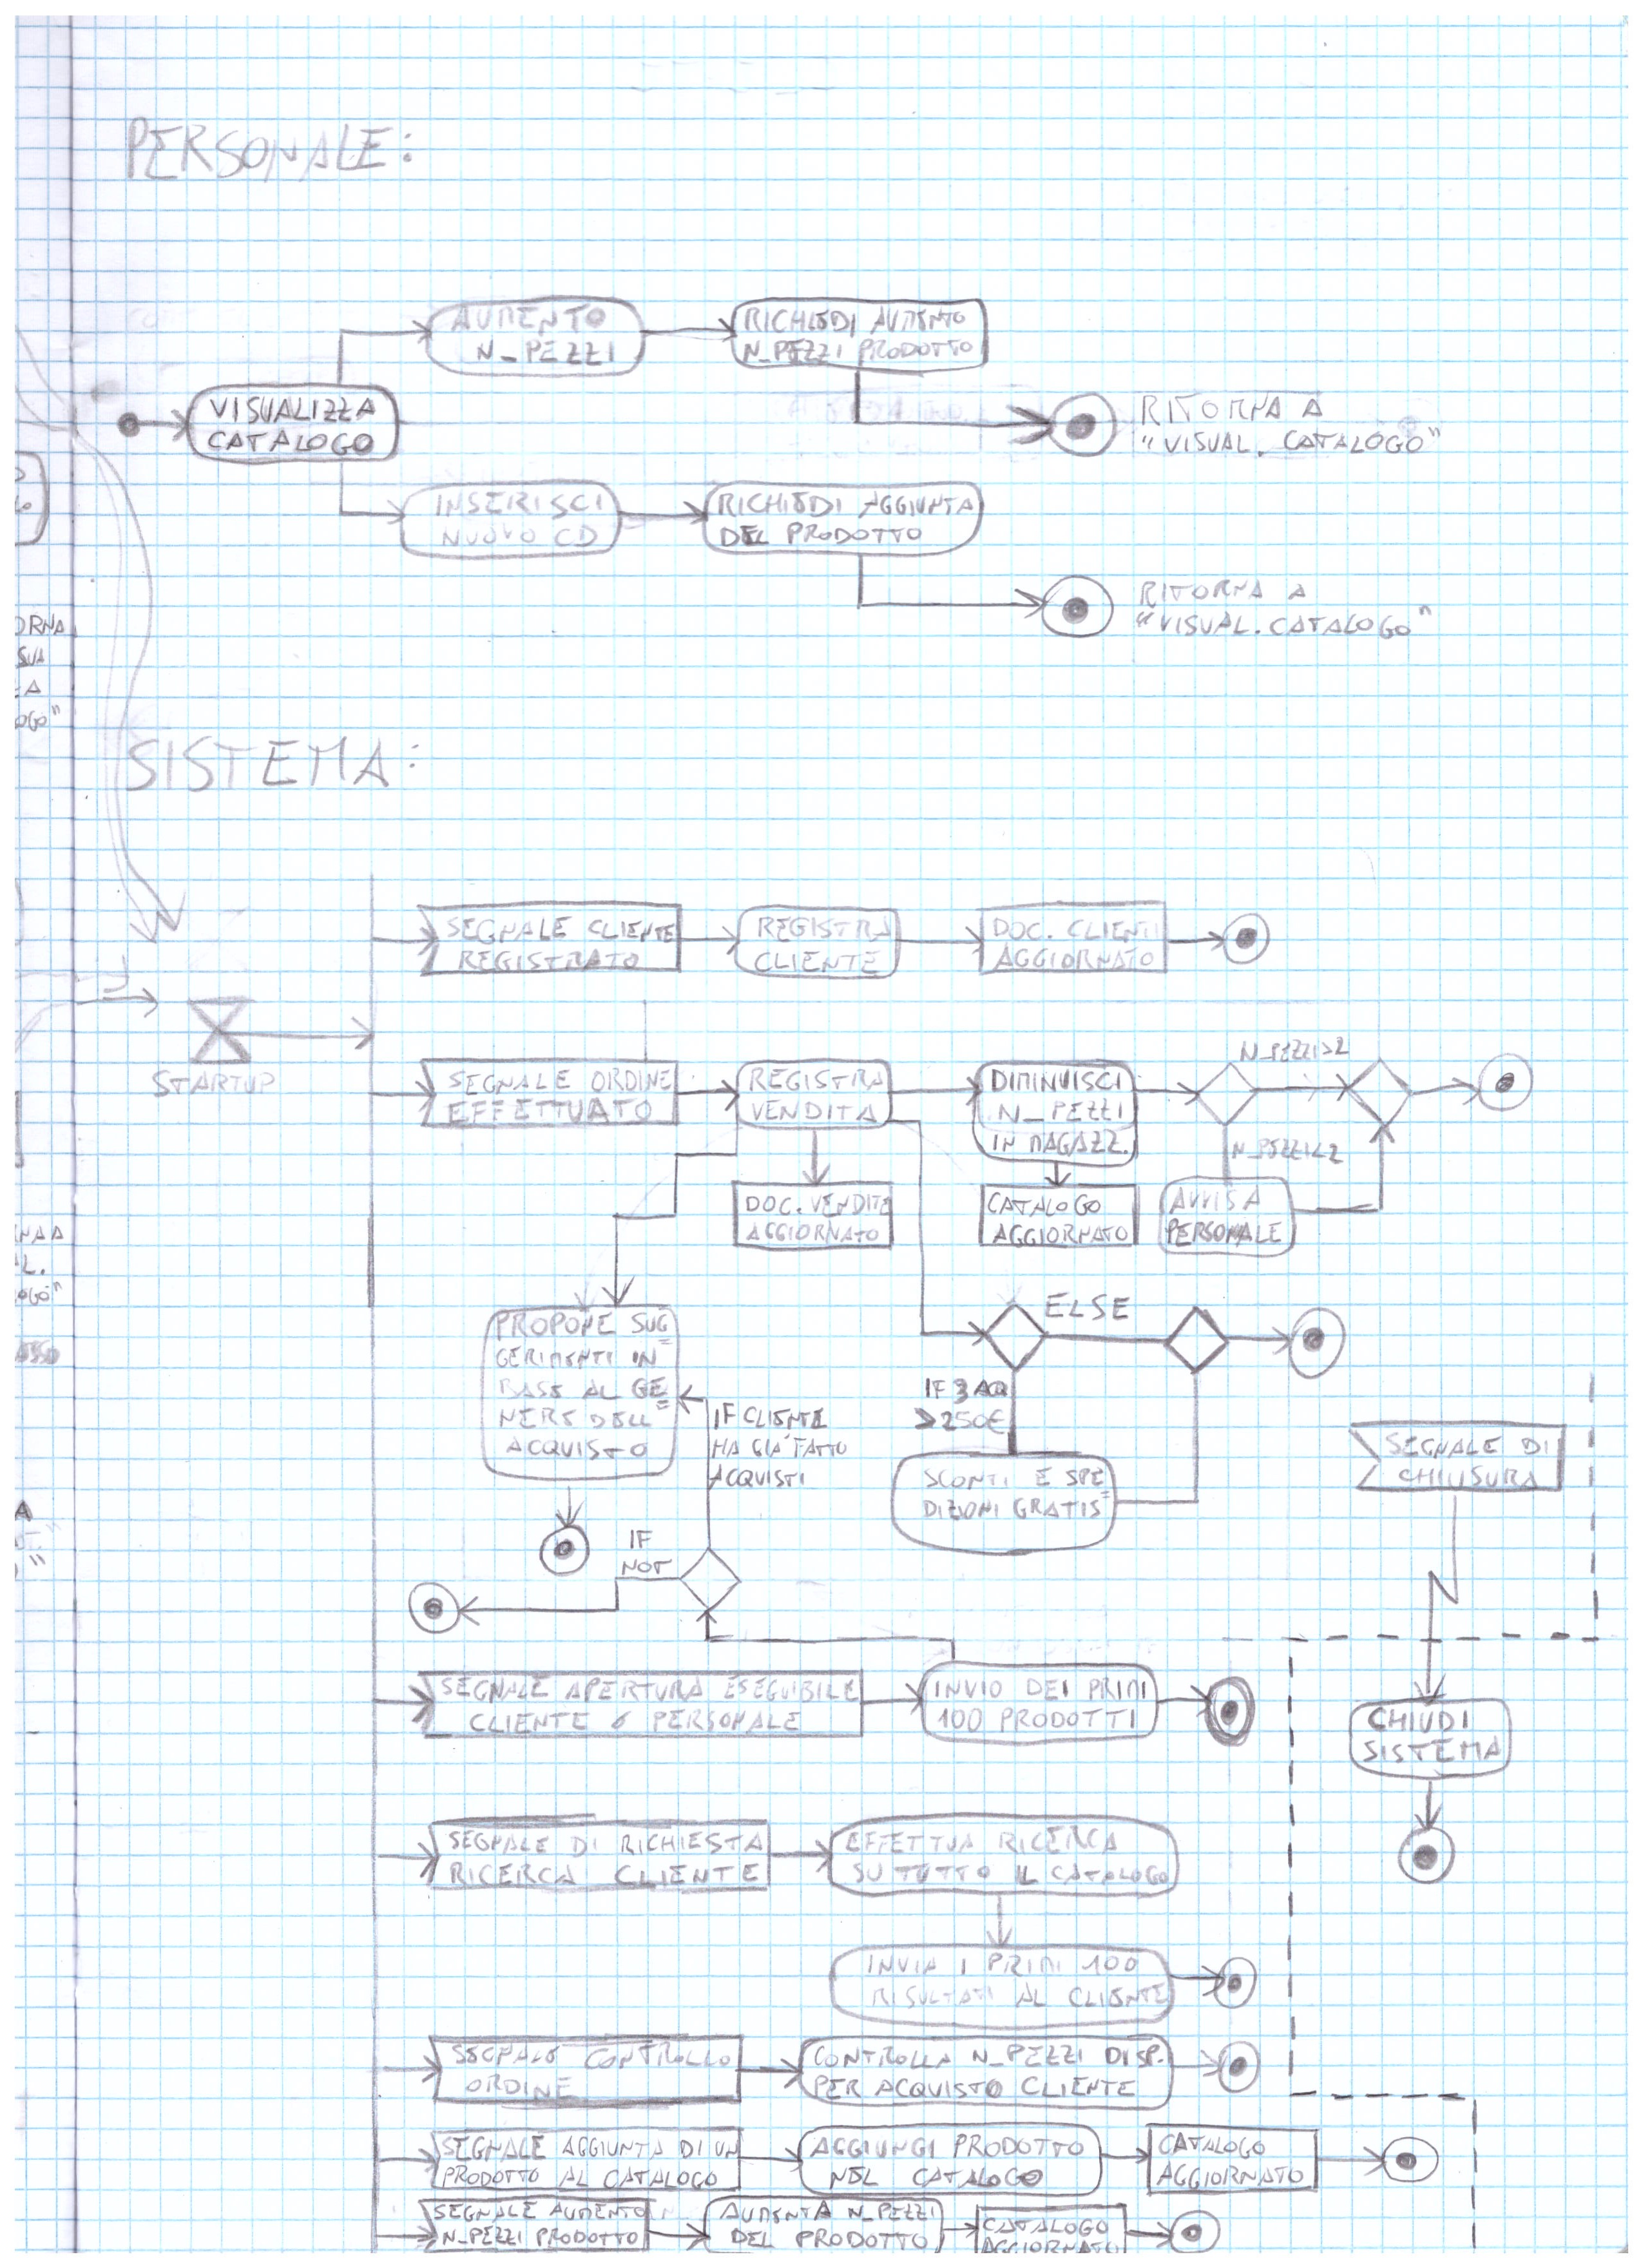 PERSONALE:
AUMENTO
N_PEZZI
RICHIEDI AUMENTO
N_PEZZI PRODOTTO
VISUALIZZA
CATALOGO
RITORNA A
"VISUAL. CATALOGO"
INSERISCI
NUOVO CD
RICHIEDI AGGIUNTA
DEL PRODOTTO
RITORNA A
"VISUAL. CATALOGO"
SISTEMA:
SEGNALE CLIENTE
REGISTRATO
REGISTRA
CLIENTE
DOC. CLIENTI
AGGIORNATO
STARTUP
SEGNALE ORDINE
EFFETTUATO
REGISTRA
VENDITA
DIMINUISCI
N_PEZZI
IN MAGAZZ.
N_PEZZI>2
N_PEZZI<2
DOC. VENDITE
AGGIORNATO
CATALOGO
AGGIORNATO
AVVISA
PERSONALE
PROPONE SUG
GERIMENTI IN
BASE AL GE
NERE DELL'
ACQUISTO
ELSE
IF 3 ACQ
>250€
SCONTI E SPE
DIZIONI GRATIS
IF CLIENTE
HA GIA' FATTO
ACQUISTI
IF
NOT
SEGNALE DI
CHIUSURA
SEGNALE APERTURA ESEGUIBILE
CLIENTE O PERSONALE
INVIO DEI PRIMI
100 PRODOTTI
CHIUDI
SISTEMA
SEGNALE DI RICHIESTA
RICERCA CLIENTE
EFFETTUA RICERCA
SU TUTTO IL CATALOGO
INVIA I PRIMI 100
RISULTATI AL CLIENTE
SEGNALE CONTROLLO
ORDINE
CONTROLLA N_PEZZI DISP.
PER ACQUISTO CLIENTE
SEGNALE AGGIUNTA DI UN
PRODOTTO AL CATALOGO
AGGIUNGI PRODOTTO
NEL CATALOGO
CATALOGO
AGGIORNATO
SEGNALE AUMENTO
N_PEZZI PRODOTTO
AUMENTA N_PEZZI
DEL PRODOTTO
CATALOGO
AGGIORNATO